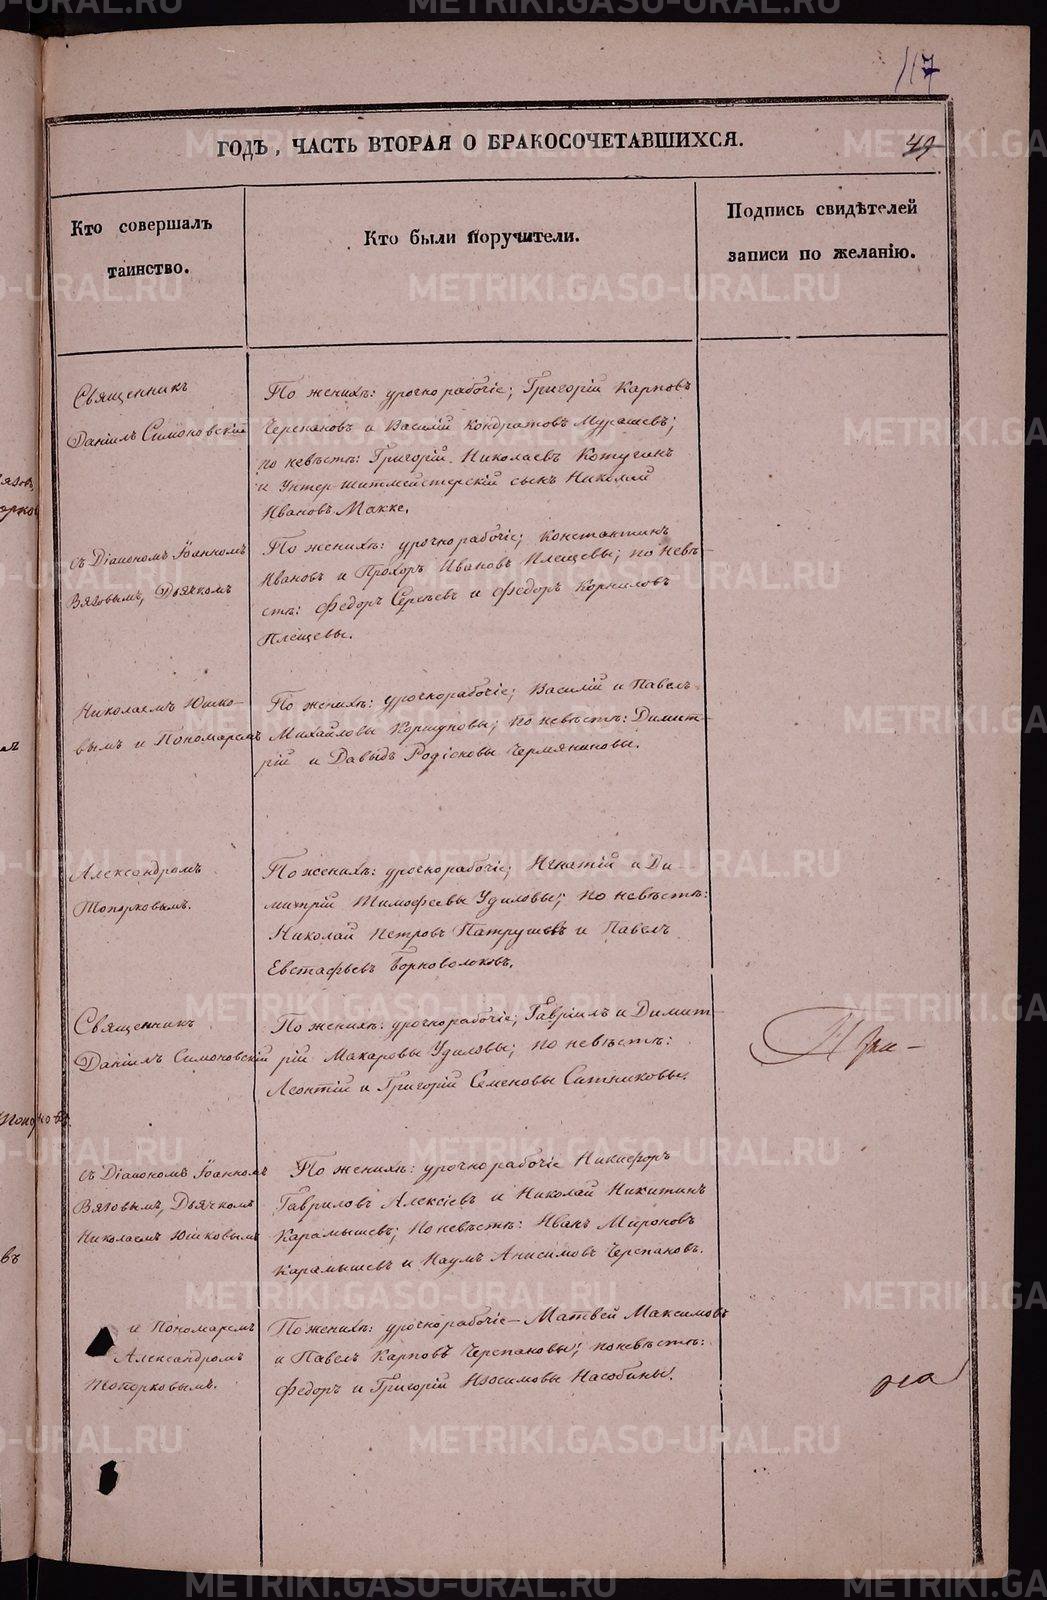 117
ГОДЪ, ЧАСТЬ ВТОРАЯ О БРАКОСОЧЕТАВШИХСЯ.
49
Кто совершалъ
таинство.
Кто были поручители.
Подпись свидѣтелей
записи по желанію.
Священникъ
Даніилъ Симоновскій
По женихѣ: урочнорабочіе; Григорій Карповъ
Черепановъ и Василій Кондратовъ Мурашевъ;
по невѣстѣ: Григорій Николаевъ Котугинъ
и Унтер-шитмейстерскій сынъ Николай
Ивановъ Макке.
съ Діакономъ Іоанномъ
Вяговымъ, Дьячкомъ
По женихѣ: урочнорабочіе; Константинъ
Ивановъ и Прохоръ Ивановъ Плещевы; по невѣ-
стѣ: Федоръ Сергѣевъ и Федоръ Корниловъ
Плещевы.
Николаемъ Юшко-
вымъ и Пономаремъ
По женихѣ: урочнорабочіе; Василій и Павелъ
Михайловы Коршуновы; по невѣстѣ: Димит-
рій и Давыдъ Родіоновы Чермяниновы.
Александромъ
Топорковымъ.
По женихѣ: урочнорабочіе; Игнатій и Ди-
митрій Тимофеевы Удиловы; по невѣстѣ:
Николай Петровъ Патрушевъ и Павелъ
Евстафьевъ Борноволоковъ.
Священникъ
Даніилъ Симоновскій
По женихѣ: урочнорабочіе; Гавріилъ и Димит-
рій Макаровы Удиловы; по невѣстѣ:
Леонтій и Григорій Семеновы Ситниковы.
съ Діакономъ Іоанномъ
Вяговымъ, Дьячкомъ
Николаемъ Юшковымъ
По женихѣ: урочнорабочіе Никифоръ
Гавриловъ Алексіевъ и Николай Никитинъ
Карамышевъ; по невѣстѣ: Иванъ Мироновъ
Карамышевъ и Наумъ Анисимовъ Черепановъ.
и Пономаремъ
Александромъ
Топорковымъ.
По женихѣ: урочнорабочіе — Матвей Максимовъ
и Павелъ Карповъ Черепановы; по невѣстѣ:
Федоръ и Григорій Изосимовы Насобины.
METRIKI.GASO-URAL.RU